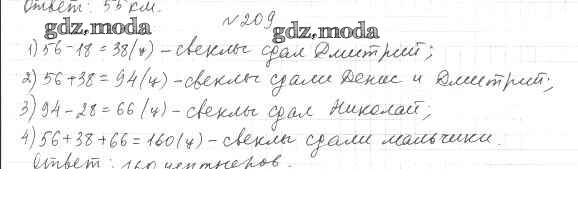 Ответ: 55 км.
№209
gdz.moda gdz.moda
1) 56-18=38(ц) - свеклы сдал Дмитрий;
2) 56+38=94(ц) - свеклы сдали Денис и Дмитрий;
3) 94-28=66(ц) - свеклы сдал Николай;
4) 56+38+66=160(ц) - свеклы сдали мальчики.
Ответ: 160 центнеров.